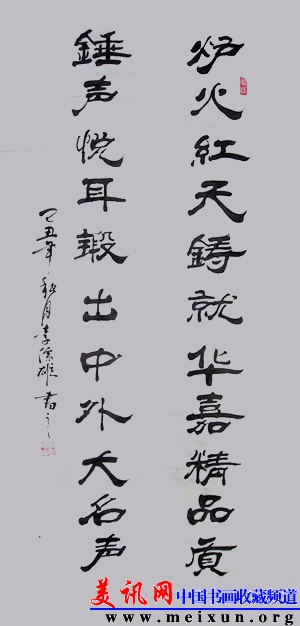 炉火紅天鋳就华嘉精品质
錘声悦耳鍛出中外大名声
己丑年秋月李溪雄書之
美讯网
中国书画收藏频道
www.meixun.org